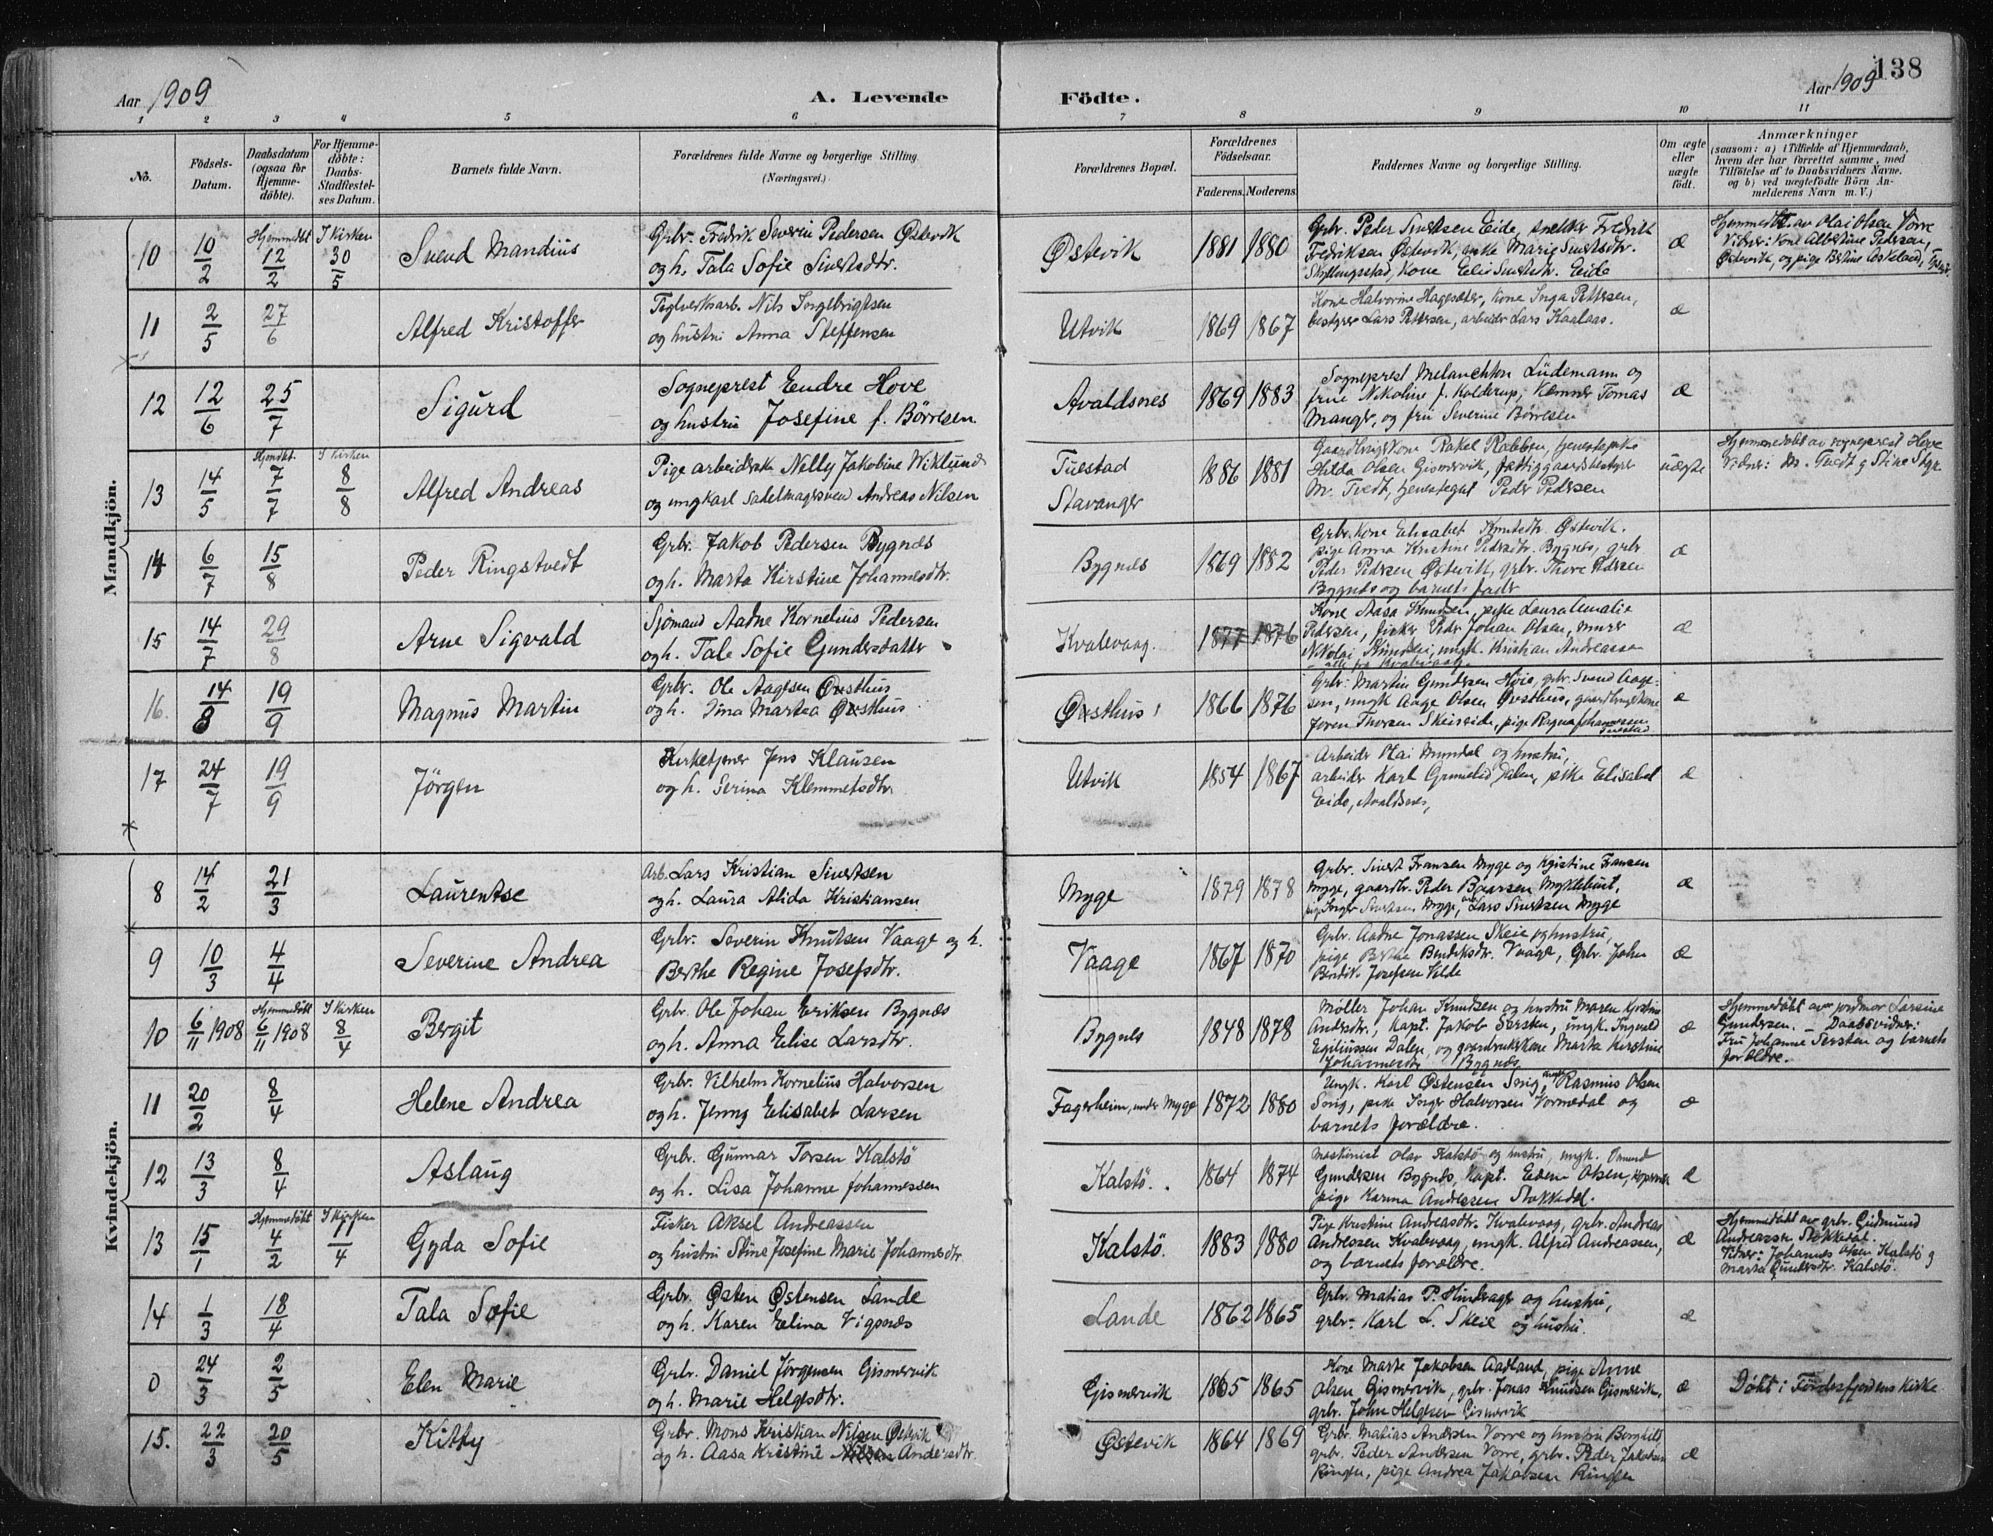 138
Aar 1909
A. Levende Födte.
Aar 1909
1 2 3 4 5 6 7 8 9 10 11
No.
Födsels-Datum.
Daabsdatum (ogsaa for Hjemme-döbte).
For Hjemme-döbte: Daabs-Stadfæstel-ses Datum.
Barnets fulde Navn.
Forældrenes fulde Navne og borgerlige Stilling. (Næringsvei.)
Forældrenes Bopæl.
Forældrenes Födselsaar.
Faderens. Moderens.
Faddernes Navne og borgerlige Stilling.
Om ægte eller uægte födt.
Anmærkninger
(saasom: a) i Tilfælde af Hjemmedaab, hvem der har forrettet samme, med Tilföielse af to Daabsvidners Navne, og b) ved uægtefödte Börn An-melderens Navn m. V.)
Mandkjön.
10 10/2 Hjemmedøbt 12/2 I Kirken 30/5 Svend Mandius
Grbr. Fredrik Severin Pedersen Østevik
og h. Tala Sofie Sivertsdtr.
Østevik 1881 1880
Grbr. Peder Sivertsen Eide, snekker Fredrik
Fredriksen Østevik, enke Marie Sivertsdtr.
Kone Eli Sivertsdtr. Eide
æ
Hjemmedøbt av Olai Olsen Vorre
Vidner: Kone Albertine Pedersen,
Østevik, og pige Bertine
11 2/5 27/6 Alfred Kristoffer
Teglverksarb. Nils Ingebrigtsen
og hustru Anna Steffensen
Utvik 1869 1867
Kone Halvorine Hagesæter, kone Inga Pettersen,
bestyrer Lars Pettersen, arbeider Lars Kaalaas.
æ
12 12/6 25/7 Sigurd
Sogneprest Endre Hove
og hustru Josefine f. Børresen
Avaldsnes 1869 1883
Sogneprest Melanchton Lüdemann og
frue Nikoline f. Kolderup, Kemner Tomas
Manger, og fru Severine Børresen
æ
13 14/5 Hjmdbt. 7/7 I Kirken 8/8 Alfred Andreas
Pige arbeiderske Nelly Jakobine Wiklund
og ungkarl sadelmagersvend Andreas Nilsen
Tuestad
Stavanger
1886 1881
Gaardbrugskone Rakel Rabben, tjenestepike
Hilda Olsen Gismervik, fattiggaardsbestyrer
M. Tvedt, tjenestegut Peder Pedersen
uægte
Hjemmedøbt av sogneprest Hove
Vidner: M. Tvedt og Stine
14 6/7 15/8 Peder Ringstvedt
Grbr. Jakob Pedersen Bygnæs
og h. Marta Kirstine Johannesdtr.
Bygnæs 1869 1882
Grbr.kone Elisabet Knutsdtr. Østevik.
pige Anna Kristine Pedersdtr. Bygnes, grbr
Peder Pedersen Østevik, grbr. Thore Pedersen
Bygnæs og barnets fader
æ
15 14/7 29/8 Arne Sigvald
Sjømand Aadne Kornelius Pedersen
og h. Tale Sofie Gundersdatter
Kvalevaag. 1877 1876
Kone Aasa Knudsen, pike Laura Amalie
Pedersen, fisker Peder Johan Olsen, murer
Nikolai, ungk. Kristian Andreassen
alle fra Kvalevaag
æ
16. 14/8 19/9 Magnus Martin
Grbr. Ole Aagesen Øvsthus
og h. Tina Martea Øvsthus
Øvsthus 1866 1876
Grbr. Martin Gundersen Høie, grbr. Svend Aage-
sen, ungk Aage Olsen Øvsthus, gaardbrugskone
Joren Thorsen Skeiseide, pige Ragna Johannessen
Tuestad
æ
17 24/7 19/9 Jörgen
Kirketjener Jens Klausen
og h. Serina Klemmetsdtr.
Utvik 1854 1867
Arbeider Olai Mundal og hustru,
arbeider Karl Dalen, pike Elisabet
Eide, Avaldsnes,
æ
Kvindekjön.
8 14/2 21/3 Laurentse
Arb. Lars Kristian Sivertsen
og h. Laura Alida Kristiansen
Myge 1879 1878
Grbr. Sivert Fransen Myge og Kristine Fransen
Myge, gaardbr. Peder Baarsen Myklebust,
pige Inger Sivertsen Myge, Lars Sivertsen Myge
æ
9 10/3 4/4 Severine Andrea
Grbr. Severin Knutsen Vaage og h.
Berthe Regine Josefsdtr.
Vaage 1867 1870
Grbr. Aadne Jonassen Skeie og hustru,
pige Berthe Bendiksdtr. Vaage, Grbr. Johan
Bendik Josefsen Velde
æ
10 6/11 1908 Hjemmedöbt 6/11 1908 I Kirken 8/4 Bergit
Grbr. Ole Johan Eriksen Bygnæs
og h. Anna Elise Larsdtr.
Bygnes 1848 1878
Møller Johan Knudsen og hustru Maren Kirstine
Andersdtr., Kapt. Jakob Sersten, ungk. Ingvald
Egiliussen Dalen, og gaardbrukskone Marta Kirstine
Johannesdtr. Bygnæs
æ
Hjemmedöbt av jordmor Larsine
Gundersen. - Daabsvidner:
Fru Johanne Sersten og barnets
forældre.
11 20/2 8/4 Helene Andrea
Grbr. Vilhelm Kornelius Halvorsen
og h. Jenny Elisabet Larsen
Fagerheim, under Myge 1872 1880
Ungk. Karl Østensen Snig, ungk Rasmus Olsen
Snig, pike Inger Halvorsen Vormedal og
barnets forældre.
æ
12 13/3 8/4 Aslaug
Grbr. Gunnar Torsen Kalstö
og h. Lisa Johanne Johannessen
Kalstö. 1864 1874
Maskinist Olav Kalstö og hustru, ungk. Osmund
Gundersen Bygnæs, Kapt. Edvin Olsen, Kopervik
pige Karina Andersen Stokkedal.
æ
13 15/1 Hjemmedöbt 4/2 I Kirken 11/4 Gyda Sofie
Fisker Aksel Andreassen
og hustru Stine Josefine Marie Johannesdtr
Kalstö. 1883 1880
Pige Kristine Andreasdtr. Kvalevaag, grbr. Andreas
Andressen Kvalevaag, ungk. Alfred Andreassen,
og barnets forældre.
æ
Hjemmedöbt av grbr. Gudmund
Andreassen Stokkedal.
Vidner: Johannes Olsen Kalstö og
Marta Gundersdtr. Kalstö.
14 1/3 18/4 Tala Sofie
Grbr. Østen Østensen Lande
og h. Karen Elina Vigsnæs
Lande 1862 1865
Grbr. Matias P. Hindrager og hustru,
grbr. Karl L. Skeie og hustru.
æ
0 24/3 2/5 Elen Marie
Grbr. Daniel Jørgensen Gismervik
og h. Marie Helgesdtr.
Gismervik 1865 1865
Kone Marte Jakobsen Aadland, pige Anne
Olsen Gismervik, grbr. Jonas Knudsen Gismervik,
grbr. John Helgesen Gismervik
æ
Døbt i Førdesfjordens kirke
15. 22/3 20/5 Kitty
Grbr. Mons Kristian Nilsen Østevik
og h. Aasa Kristine Andersdtr.
Østevik 1864 1869
Grbr. Matias Andersen Vorre og hustru Borghild,
grbr. Peder Andersen Vorre, grbr. Peder Jakobsen
Ringen, pige Andrea Jakobsen Ringen
æ